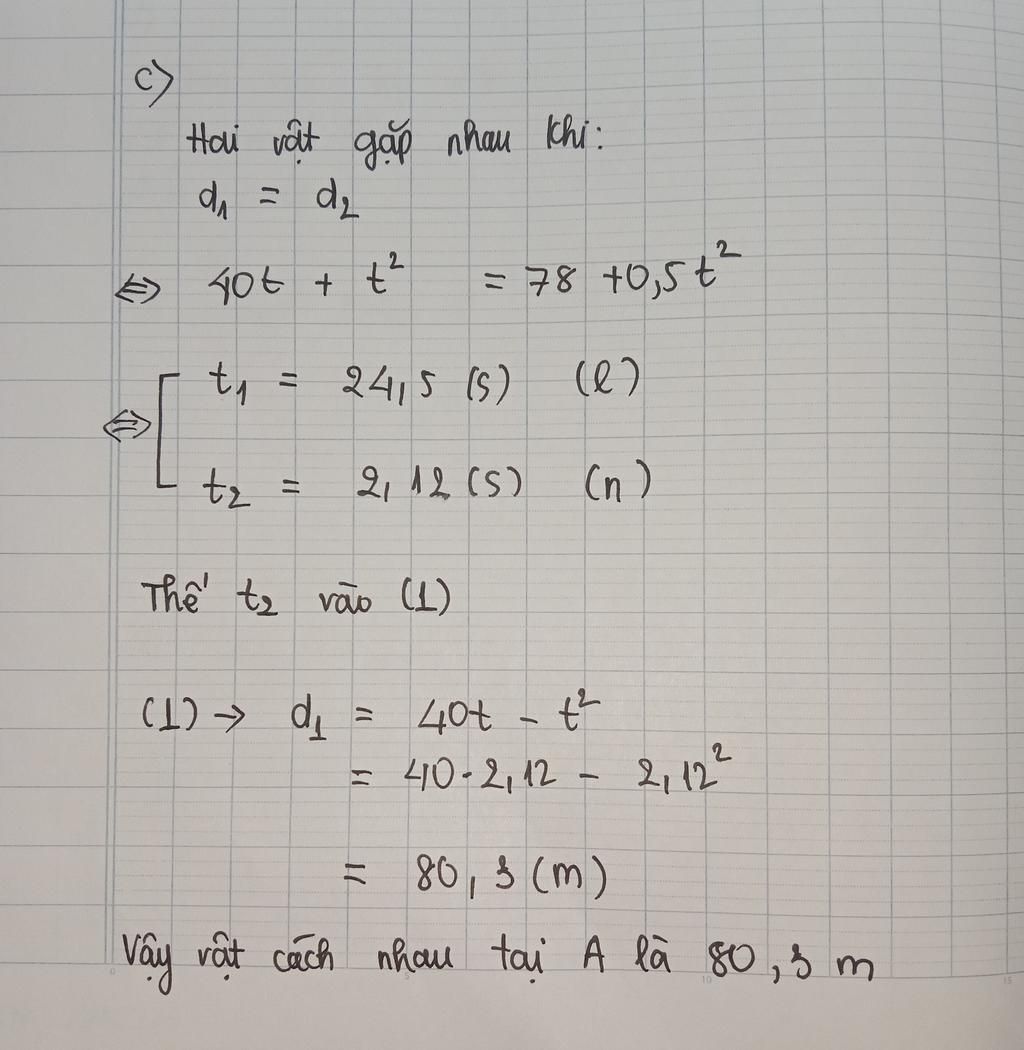 c)
Hai vật gặp nhau khi:
d₁ = d₂
⇔ 40t + t² = 78 + 0,5t²
⇔ [ t₁ = 24,5 (s) (l)
t₂ = 2,12 (s) (n)
Thế t₂ vào (1)
(1) → d₁ = 40t - t²
= 40 . 2,12 - 2,12²
= 80,3 (m)
Vậy vật cách nhau tại A là 80,3 m